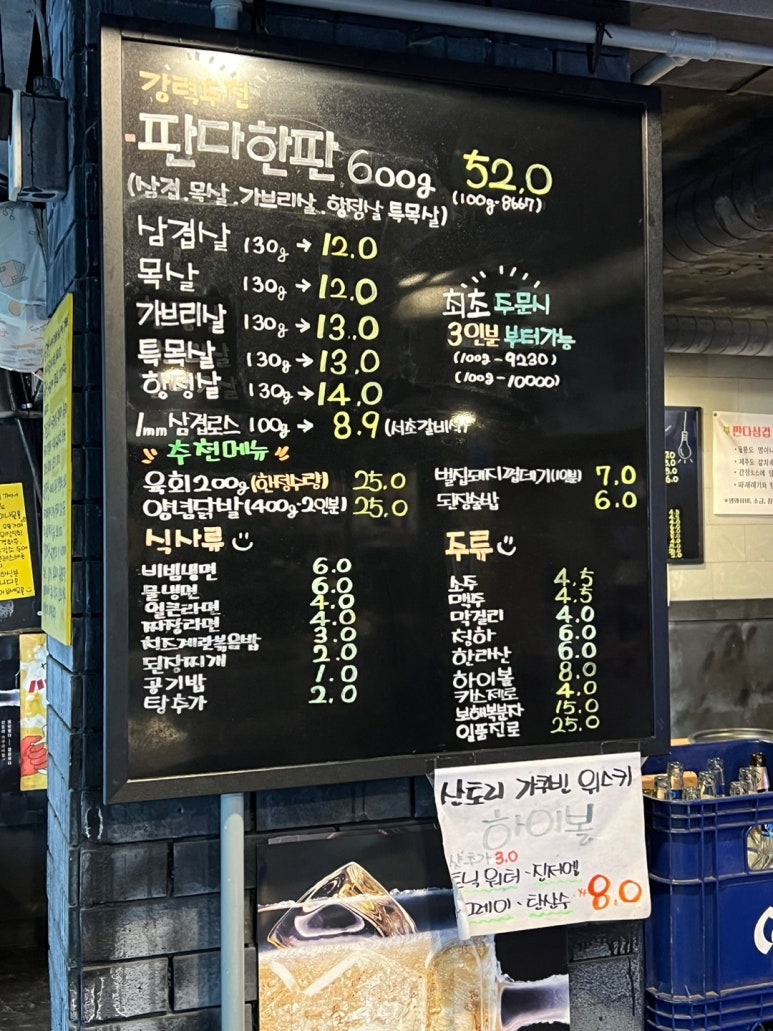 강력추천
판다한판 600g 52.0
(삼겹.목살.가브리살.항정살 특목살) (100g-8667)
삼겹살 130g → 12.0
목살 130g → 12.0
가브리살 130g → 13.0
특목살 130g → 13.0
항정살 130g → 14.0
1mm삼겹로스 100g → 8.9 (서초갈비식)
최초 주문시
3인분 부터가능
(100g-9230)
(100g-10000)
추천메뉴
육회200g(한정수량) 25.0
양념닭발(400g-2인분) 25.0
벌집돼지껍데기(10분) 7.0
된장술밥 6.0
식사류
비빔냉면 6.0
물냉면 6.0
얼큰라면 4.0
짜장라면 4.0
치즈계란볶음밥 3.0
된장찌개 2.0
공기밥 1.0
탕추가 2.0
주류
소주 4.5
맥주 4.5
막걸리 4.0
청하 6.0
한라산 6.0
하이볼 8.0
키스제로 4.0
보해복분자 15.0
일품진로 25.0
산토리 가쿠빈 위스키
하이볼
샷추가 3.0
토닉워터·진저엘
그레이·탄산수 8.0
판다삼겹